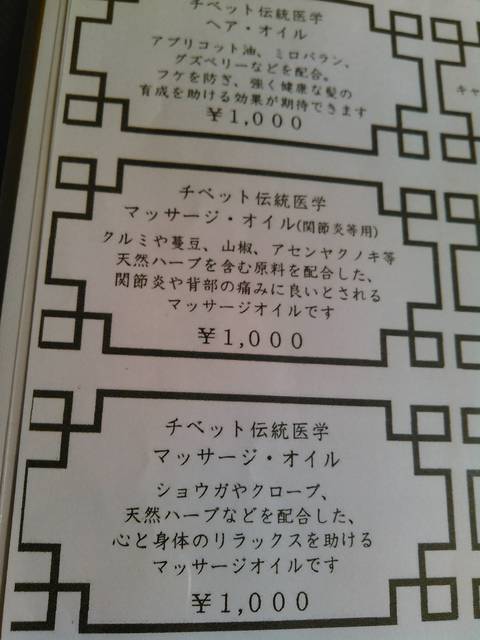 チベット伝統医学
ヘア・オイル
アプリコット油、ミロバラン、
グズベリーなどを配合。
フケを防ぎ、強く健康な髪の
育成を助ける効果が期待できます
￥1,000
キャ
チベット伝統医学
マッサージ・オイル(関節炎等用)
クルミや蔓豆、山椒、アセンヤクノキ等
天然ハーブを含む原料を配合した、
関節炎や背部の痛みに良いとされる
マッサージオイルです
￥1,000
チベット伝統医学
マッサージ・オイル
ショウガやクローブ、
天然ハーブなどを配合した、
心と身体のリラックスを助ける
マッサージオイルです
￥1,000